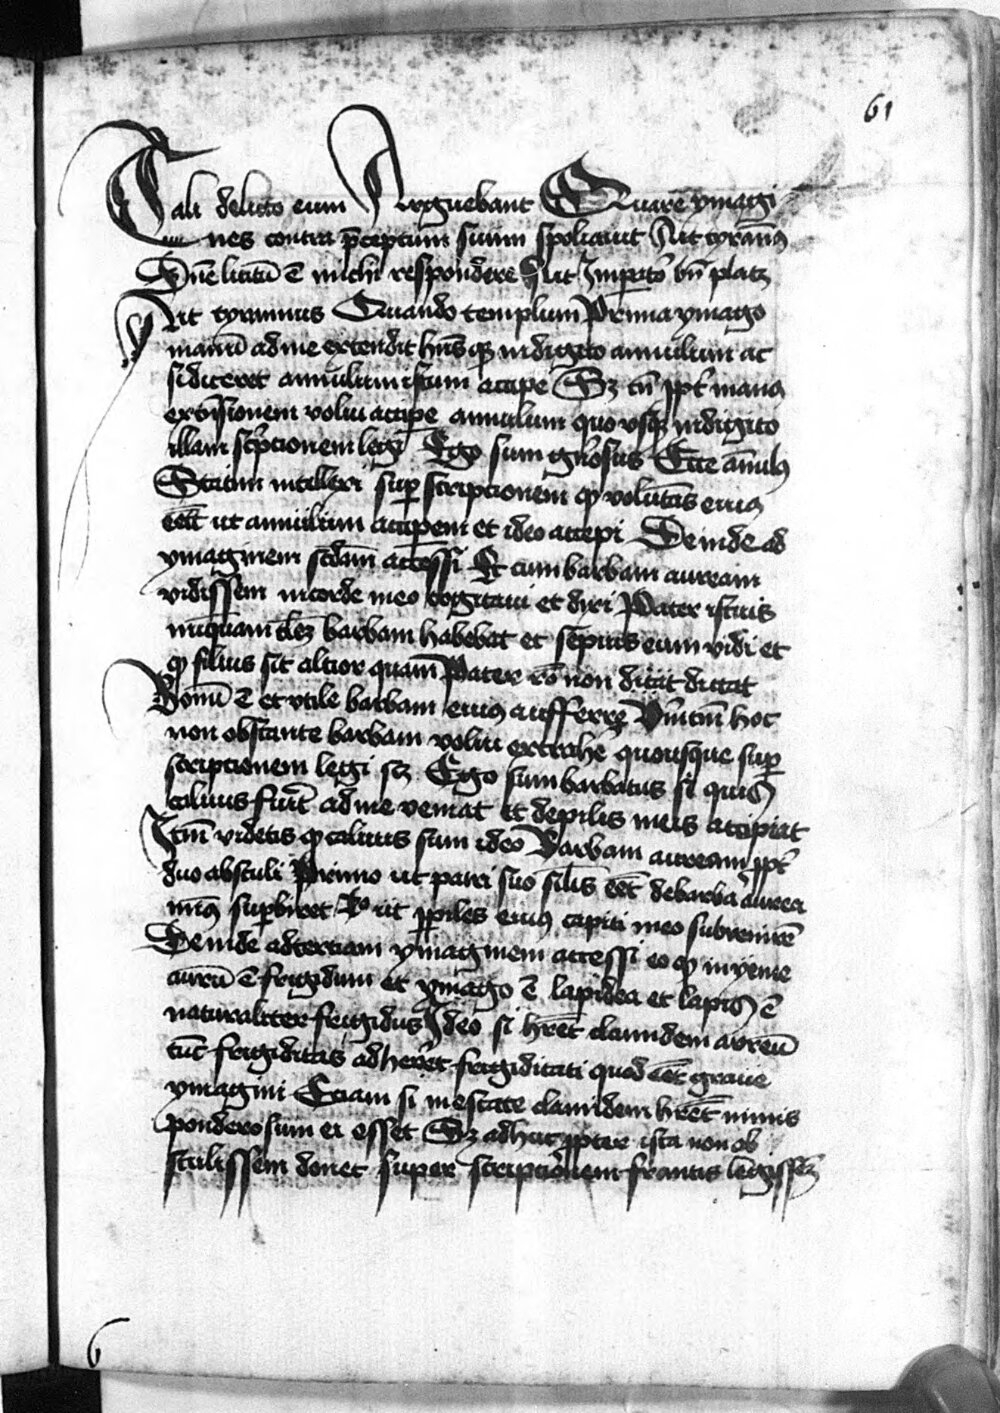 61
Tali delicto eum Arguebant Quare ymagi
nes contra p̄ceptum suum spoliauit Ait tyrann9
Dn̄e licitū ē michi respondere Ait Imperator bn̄ placz
Ait tyrannus Quando templum Prima ymago
manū ad me extendit hn̄s in digito annulum ac
si diceret annulum istum accipe Sz cū ppt̄ man9
extēsionem volui accipe annulum quousqz in digito
illam scͥpcionem legi Ego sum gn̄osus Ecce ānul9
Statim intellexi sup scripcionem ꝙ volūtas eius
eēt ut annulum accipem et ideo accepi Deinde ad
ymaginem scdam accessi Et cum barbam auream
vidissem in corde meo cogitaui et dixi Pater istius
nūquam talez barbam habebat et sepius eum vidi et
ꝙ filius sit altior quam Pater rō non dicit dictat
Bonū ē et vtile barbam eius aufferre Vnītn̄ hoc
non obstante barbam volui extrahē quousque sup
scripcionem legi scz Ego sum barbatus si quis
caluus fuit̄ ad me veniat et de pilis meis accipiat
Itm̄ videtis ꝙ caluus sum ideo Barbam auream ppt̄
duo abstuli Primo ut patri suo sil̄is eēt de barba aurea
nimis supbiret 2o ut p pilos eius capiti meo subvenirē
Deinde ad terciam ymaginem accessi eo ꝙ in yeme
aurū ē frigidum et ymago ē lapidea et lapis ē
naturaliter frigidus Ideo si hr̄et clamidem aureū
tūc frigiditas adheret frigiditati quod eēt graue
ymagini Eciam si in estate clamidem hr̄et nimis
ponderosum ei esset Sz adhuc ppter ista non ob
stulissem donec super scriptōnem frontis legissē
6